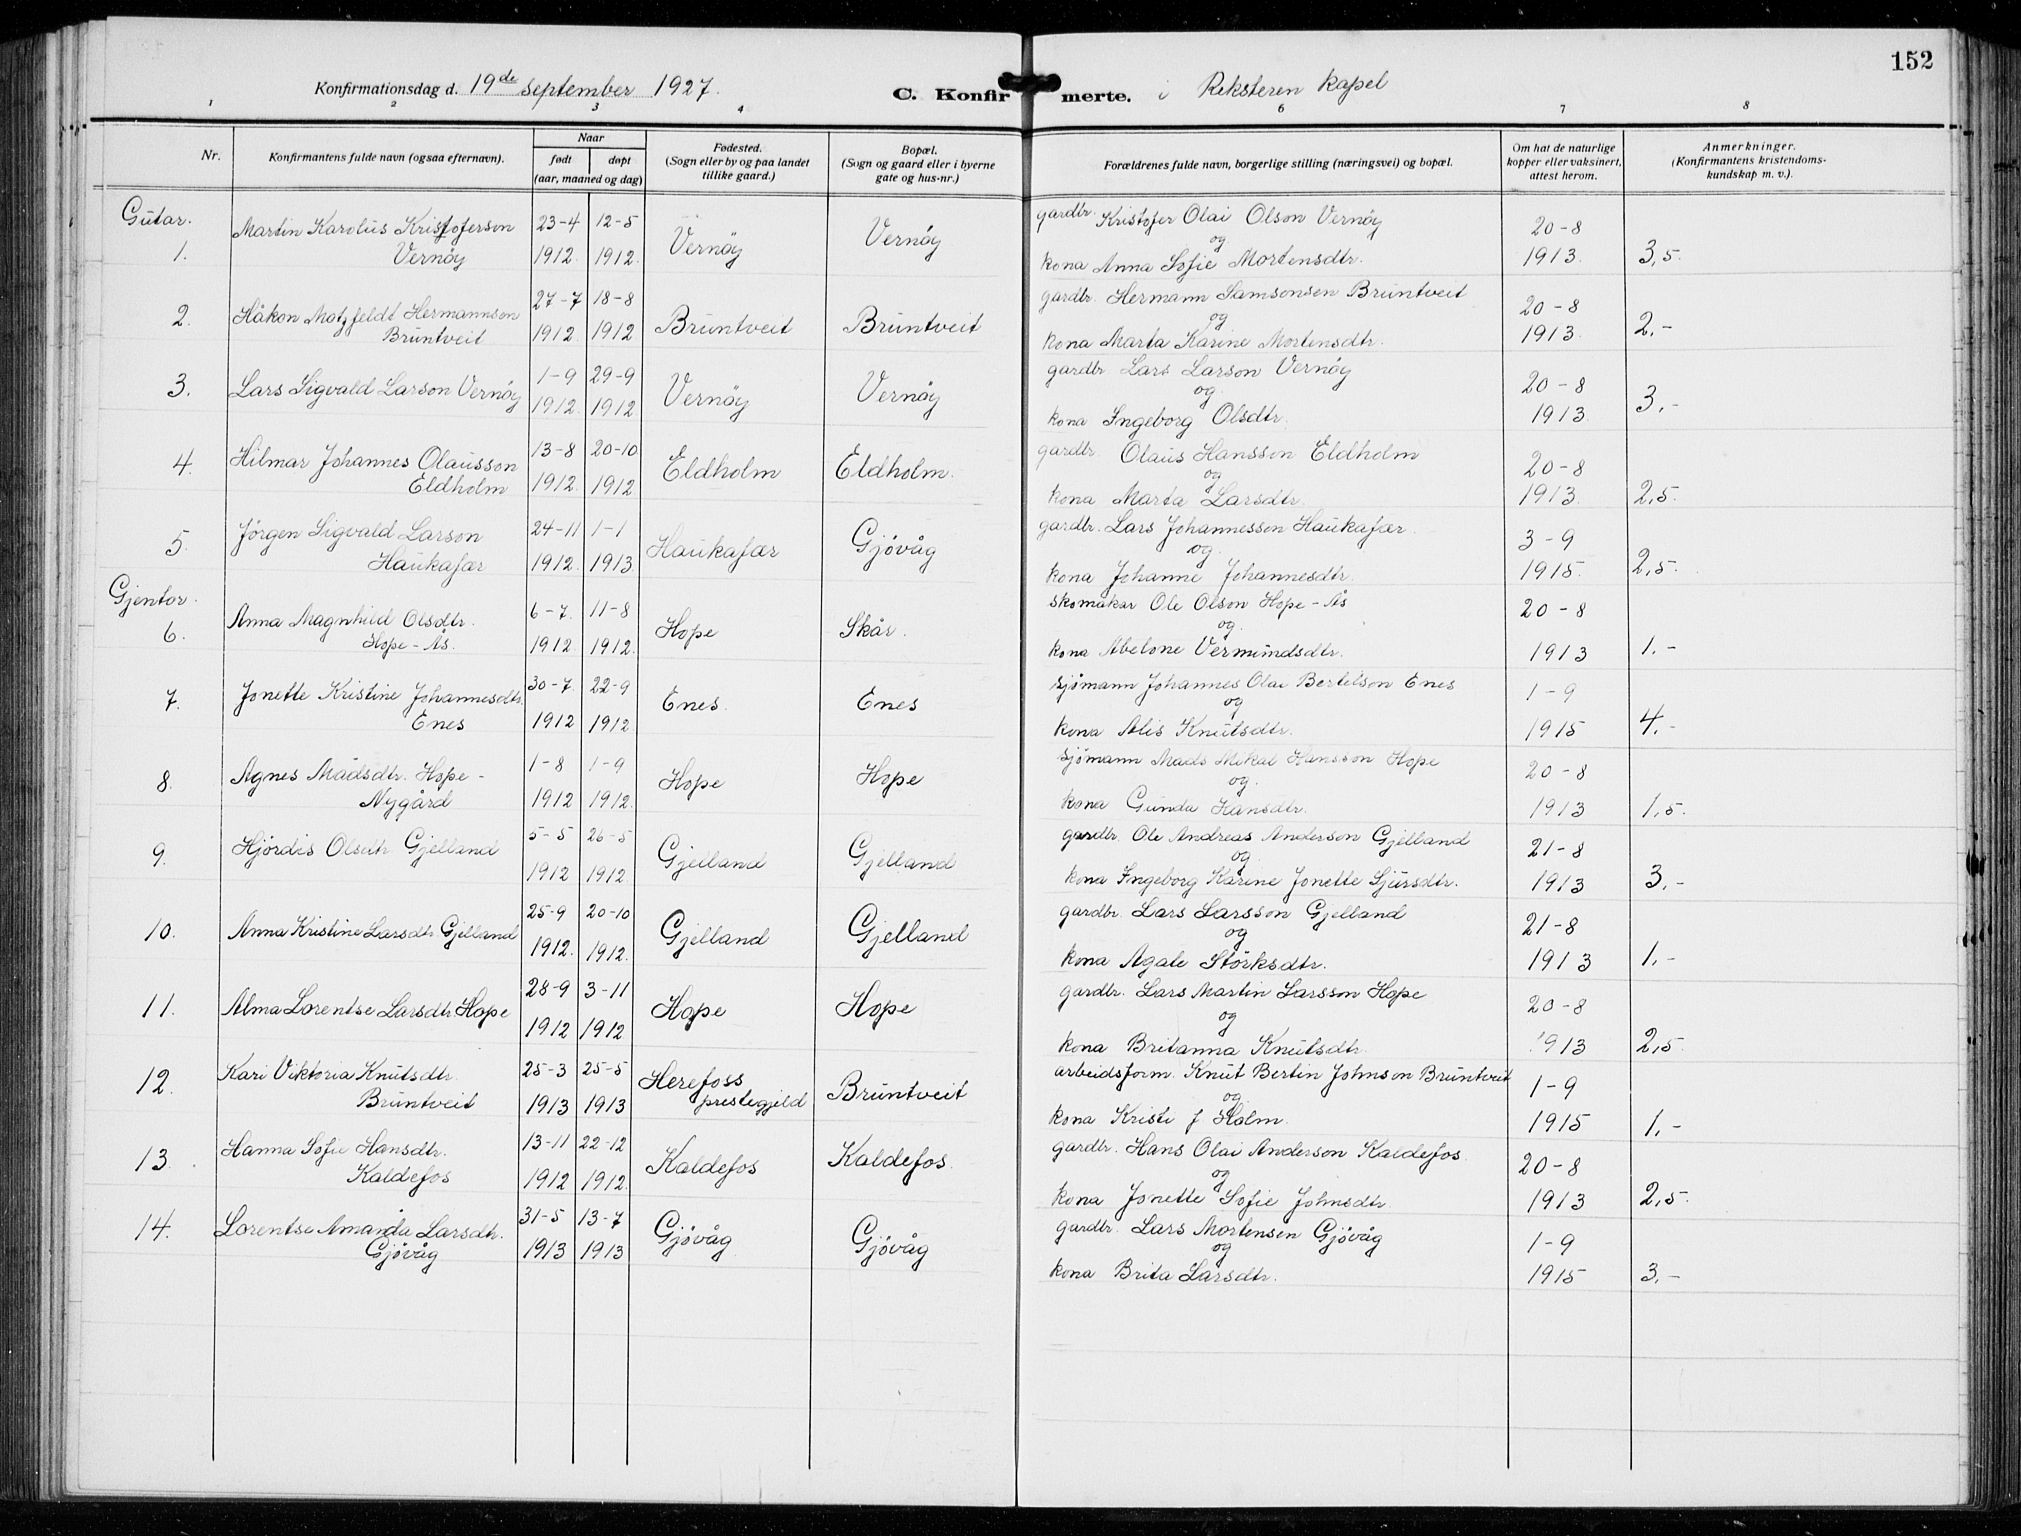 152
Konfirmationsdag d. 19de september 1927. C. Konfirmerte. i Reksteren kapel
1 2 3 4 6 7 8
Nr. Konfirmantens fulde navn (ogsaa efternavn). Naar født døpt (aar, maaned og dag) Fødested. (Sogn eller by og paa landet tillike gaard.) Bopæl. (Sogn og gaard eller i byerne gate og hus-nr.) Forældrenes fulde navn, borgerlige stilling (næringsvei) og bopæl. Om hat de naturlige kopper eller vaksinert, attest herom. Anmerkninger. (Konfirmantens kristendomskundskap m. v.).
Gutar.
1. Martin Karolus Kristoferson Vernøy 23-4 1912. 12-5 1912. Vernøy Vernøy gardbr. Kristofer Olai Olson Vernøy og kona Anna Sofie Mortensdtr. 20-8 1913. 3,5.
2. Håkon Motzfeldt Hermannson Bruntveit 27-7 1912. 18-8 1912 Bruntveit Bruntveit gardbr. Hermann Samsonsen Bruntveit og kona Marta Karine Mortensdtr. 20-8 1913. 2.-
3. Lars Sigvald Larson Vernøy 1-9 1912. 29-9 1912 Vernøy Vernøy gardbr Lars Larson Vernøy og kona Ingeborg Olsdtr. 20-8 1913. 3.-
4. Hilmar Johannes Olausson Eldholm 13-8 1912. 20-10 1912 Eldholm Eldholm. gardbr. Olaus Hansson Eldholm og kona Marta Larsdtr. 20-8 1913. 2,5.
5. Jørgen Sigvald Larson Haukafær 24-11 1912. 1-1 1913. Haukafær Gjøvåg gardbr. Lars Johannessen Haukafær. og. kona Johanne Johannesdtr. 3-9 1915. 2,5.
Gjentor.
6. Anna Magnhild Olsdtr. Hope-Ås. 6-7. 1912. 11-8 1912. Hope Skår. skomakar Ole Olson Hope-Ås og. kona Abelone Vermundsdtr. 20-8 1913 1.-
7. Jonette Kristine Johannesdtr. Enes 30-7. 1912 22-9 1912. Enes. Enes sjømann Johannes Olai Bertelson Enes og kona Alis Knutsdtr. 1-9 1915 4.-
8. Agnes Madsdtr. Hope-Nygård 1-8 1912 1-9 1912. Hope Hope sjømann Mads Mikal Hansson Hope og. kona Gunda Hansdtr. 20-8 1913 1,5.
9. Hjørdis Olsdtr Gjelland 5-5 1912 26-5 1912. Gjelland Gjelland gardbr Ole Andreas Anderson Gjelland og. kona Ingeborg Karine Jonette Sjursdtr. 21-8 1913 3.-
10. Anna Kristine Larsdtr. Gjelland 25-9 1912. 20-10 1912. Gjelland Gjelland gardbr. Lars Larsson Gjelland og kona Agate Størksdtr. 21-8 1913 1.-
11. Alma Lorentse Larsdtr. Hope 28-9 1912 3-11 1912 Hope Hope gardbr. Lars Martin Larsson Hope og kona Britanna Knutsdtr. 20-8 1913 2,5.
12. Kari Viktoria Knutsdtr. Bruntveit 25-3 1913 25-5 1913 Herefoss prestegjeld Bruntveit arbeidsform. Knut Bertin Johnson Bruntveit og. kona Kristi f Holm. 1-9 1915 1.-
13. Hanna Sofie Hansdtr. Kaldefos 13-11 1912 22-12 1912. Kaldefos Kaldefos. gardbr. Hans Olai Anderson Kaldefos. og kona Jonette Sofie Johnsdtr. 20-8 1913 2,5.
14. Lorentse Amanda Larsdtr. Gjøvåg 31-5 1913 13-7 1913 Gjøvåg Gjøvåg gardbr. Lars Mortensen Gjøvåg og kona Brita Larsdtr. 1-9 1915 3.-